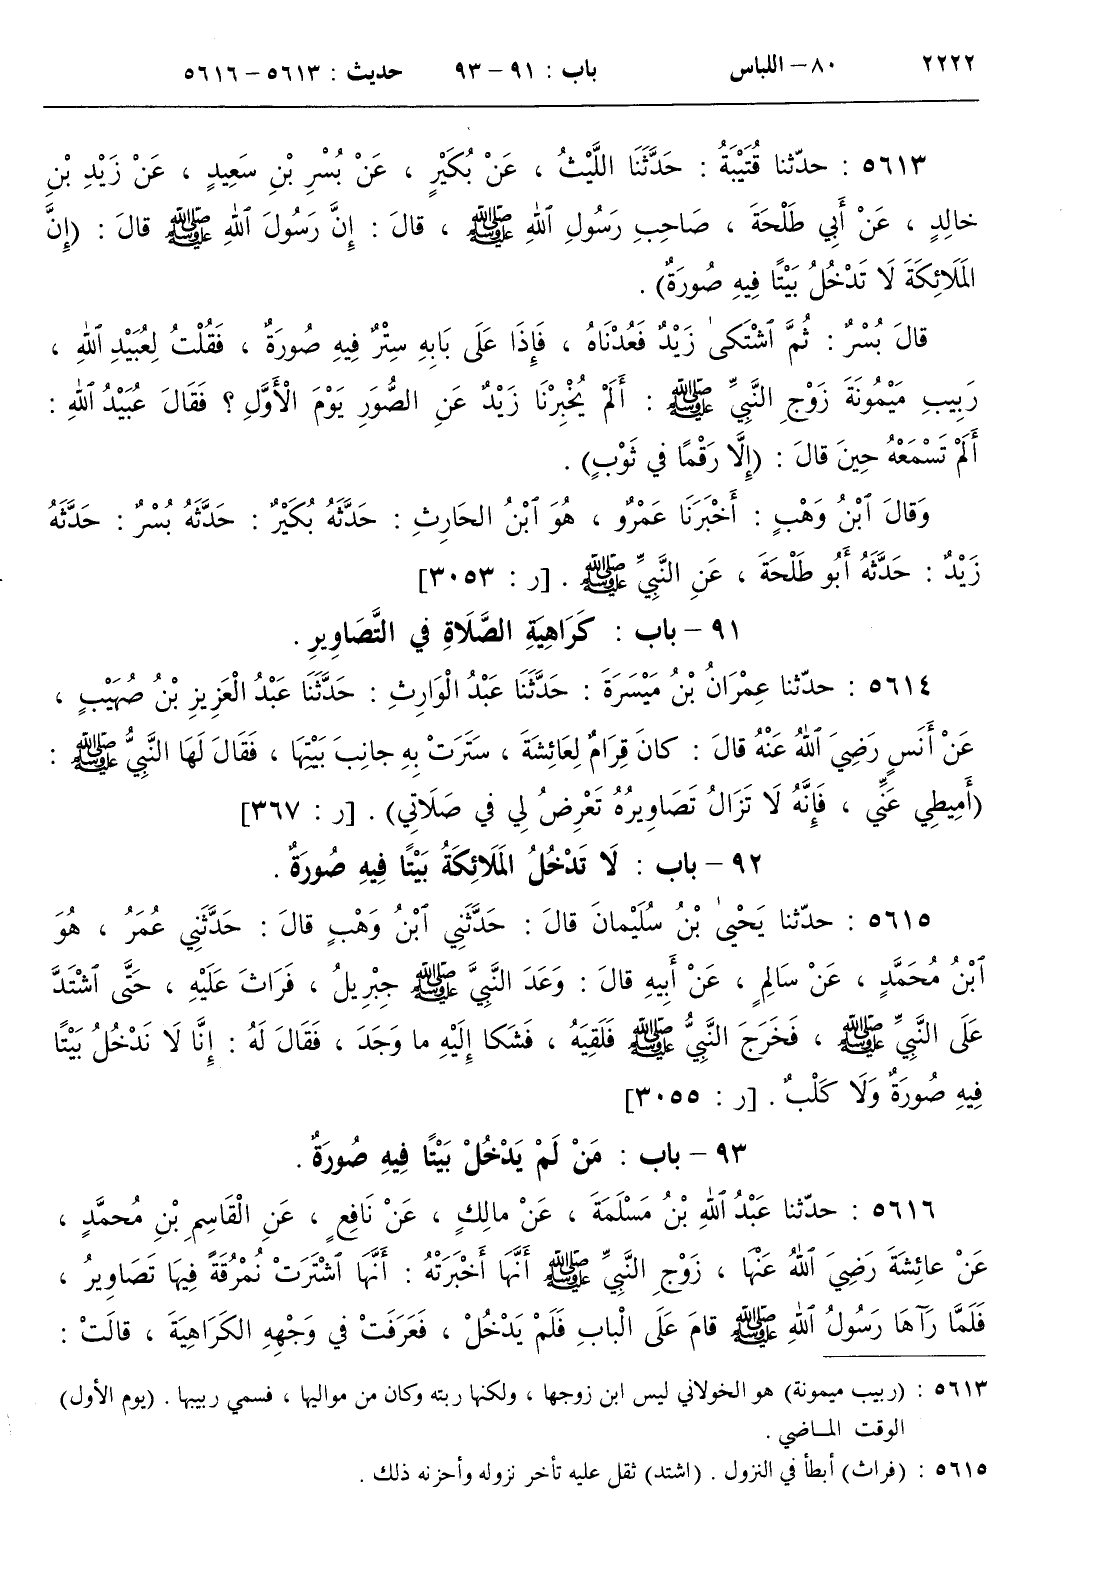 ٢٢٢٢ ٨٠ – اللباس باب : ٩١ – ٩٣ حديث : ٥٦١٣ – ٥٦١٦
٥٦١٣ : حدّثنا قُتَيْبَةُ : حَدَّثَنَا اللَّيْثُ ، عَنْ بُكَيْرٍ ، عَنْ بُسْرِ بْنِ سَعِيدٍ ، عَنْ زَيْدِ بْنِ
خالِدٍ ، عَنْ أَبِي طَلْحَةَ ، صَاحِبِ رَسُولِ ٱللهِ ﷺ ، قالَ : إِنَّ رَسُولَ ٱللهِ ﷺ قالَ : (إِنَّ
المَلَائِكَةَ لَا تَدْخُلُ بَيْتًا فِيهِ صُورَةٌ) .
قالَ بُسْرٌ : ثُمَّ ٱشْتَكىٰ زَيْدٌ فَعُدْنَاهُ ، فَإِذَا عَلَى بَابِهِ سِتْرٌ فِيهِ صُورَةٌ ، فَقُلْتُ لِعُبَيْدِ ٱللهِ ،
رَبِيبِ مَيْمُونَةَ زَوْجِ النَّبِيِّ ﷺ : أَلَمْ يُخْبِرْنَا زَيْدٌ عَنِ الصُّوَرِ يَوْمَ الْأَوَّلِ ؟ فَقَالَ عُبَيْدُ ٱللهِ :
أَلَمْ تَسْمَعْهُ حِينَ قالَ : (إِلَّا رَقْمًا في ثَوْبٍ) .
وَقالَ ٱبْنُ وَهْبٍ : أَخْبَرَنَا عَمْرٌو ، هُوَ ٱبْنُ الحَارِثِ : حَدَّثَهُ بُكَيْرٌ : حَدَّثَهُ بُسْرٌ : حَدَّثَهُ
زَيْدٌ : حَدَّثَهُ أَبُو طَلْحَةَ ، عَنِ النَّبِيِّ ﷺ . [ر : ٣٠٥٣]
٩١ – باب : كَرَاهِيَةِ الصَّلَاةِ في التَّصَاوِيرِ .
٥٦١٤ : حدّثنا عِمْرَانُ بْنُ مَيْسَرَةَ : حَدَّثَنَا عَبْدُ الْوَارِثِ : حَدَّثَنَا عَبْدُ الْعَزِيزِ بْنُ صُهَيْبٍ ،
عَنْ أَنَسٍ رَضِيَ ٱللهُ عَنْهُ قالَ : كانَ قِرَامٌ لِعَائِشَةَ ، سَتَرَتْ بِهِ جانِبَ بَيْتِهَا ، فَقَالَ لَهَا النَّبِيُّ ﷺ :
(أَمِيطِي عَنِّي ، فَإِنَّهُ لَا تَزَالُ تَصَاوِيرُهُ تَعْرِضُ لِي في صَلَاتِي) . [ر : ٣٦٧]
٩٢ – باب : لَا تَدْخُلُ المَلَائِكَةُ بَيْتًا فِيهِ صُورَةٌ .
٥٦١٥ : حدّثنا يَحْيىٰ بْنُ سُلَيْمانَ قالَ : حَدَّثَنِي ٱبْنُ وَهْبٍ قالَ : حَدَّثَنِي عُمَرُ ، هُوَ
ٱبْنُ مُحَمَّدٍ ، عَنْ سَالِمٍ ، عَنْ أَبِيهِ قالَ : وَعَدَ النَّبِيَّ ﷺ جِبْرِيلُ ، فَرَاثَ عَلَيْهِ ، حَتَّى ٱشْتَدَّ
عَلَى النَّبِيِّ ﷺ ، فَخَرَجَ النَّبِيُّ ﷺ فَلَقِيَهُ ، فَشَكا إِلَيْهِ ما وَجَدَ ، فَقَالَ لَهُ : إِنَّا لَا نَدْخُلُ بَيْتًا
فِيهِ صُورَةٌ وَلَا كَلْبٌ . [ر : ٣٠٥٥]
٩٣ – باب : مَنْ لَمْ يَدْخُلْ بَيْتًا فِيهِ صُورَةٌ .
٥٦١٦ : حدّثنا عَبْدُ ٱللهِ بْنُ مَسْلَمَةَ ، عَنْ مالِكٍ ، عَنْ نَافِعٍ ، عَنِ الْقَاسِمِ بْنِ مُحمَّدٍ ،
عَنْ عائِشَةَ رَضِيَ ٱللهُ عَنْهَا ، زَوْجِ النَّبِيِّ ﷺ أَنَّهَا أَخْبَرَتْهُ : أَنَّهَا ٱشْتَرَتْ نُمْرُقَةً فِيهَا تَصَاوِيرُ ،
فَلَمَّا رَآهَا رَسُولُ ٱللهِ ﷺ قامَ عَلَى الْبابِ فَلَمْ يَدْخُلْ ، فَعَرَفَتْ في وَجْهِهِ الكَرَاهِيَةَ ، قالَتْ :
٥٦١٣ : (ربيب ميمونة) هو الخولاني ليس ابن زوجها ، ولكنها ربته وكان من مواليها ، فسمي ربيبها . (يوم الأول)
الوقت المـاضي .
٥٦١٥ : (فراث) أبطأ في النزول . (اشتد) ثقل عليه تأخر نزوله وأحزنه ذلك .